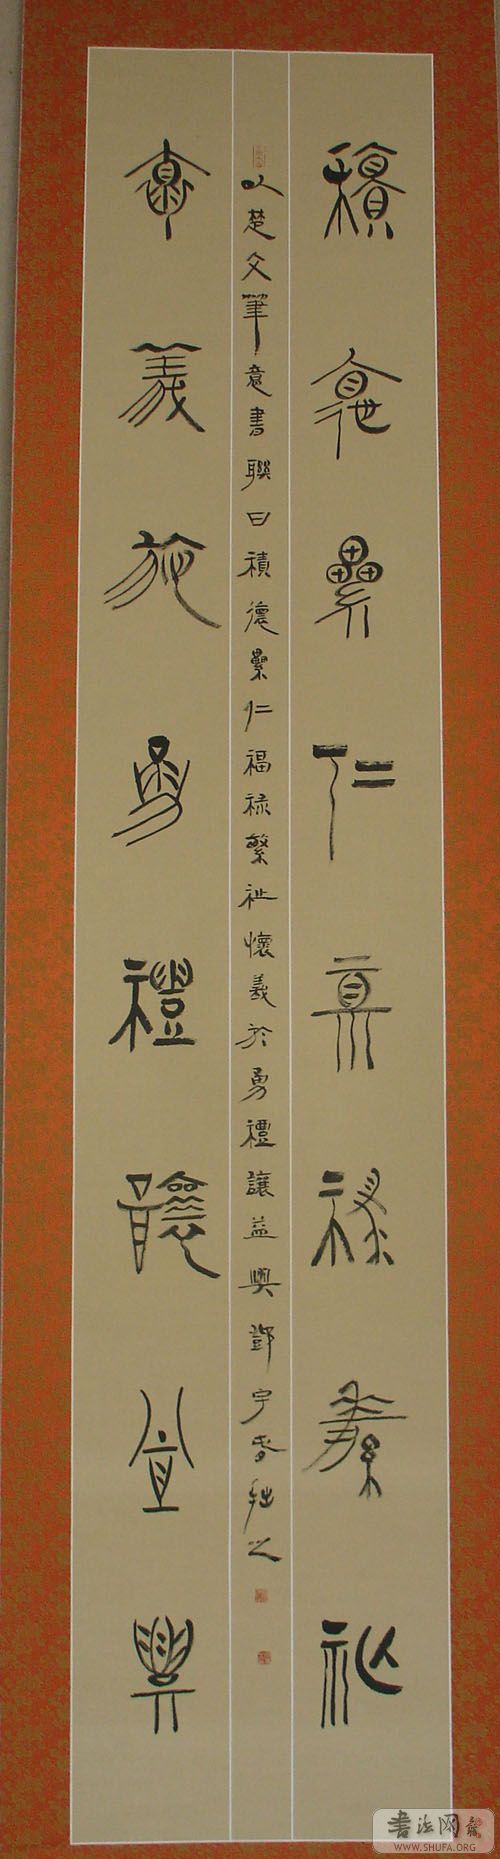 積德纍仁福祿繁祉
以楚文筆意書聯曰積德纍仁福祿繁祉懷義於勇禮讓益興鄧宇春拙之
懷義於勇禮讓益興
書法网
WWW.SHUFA.ORG